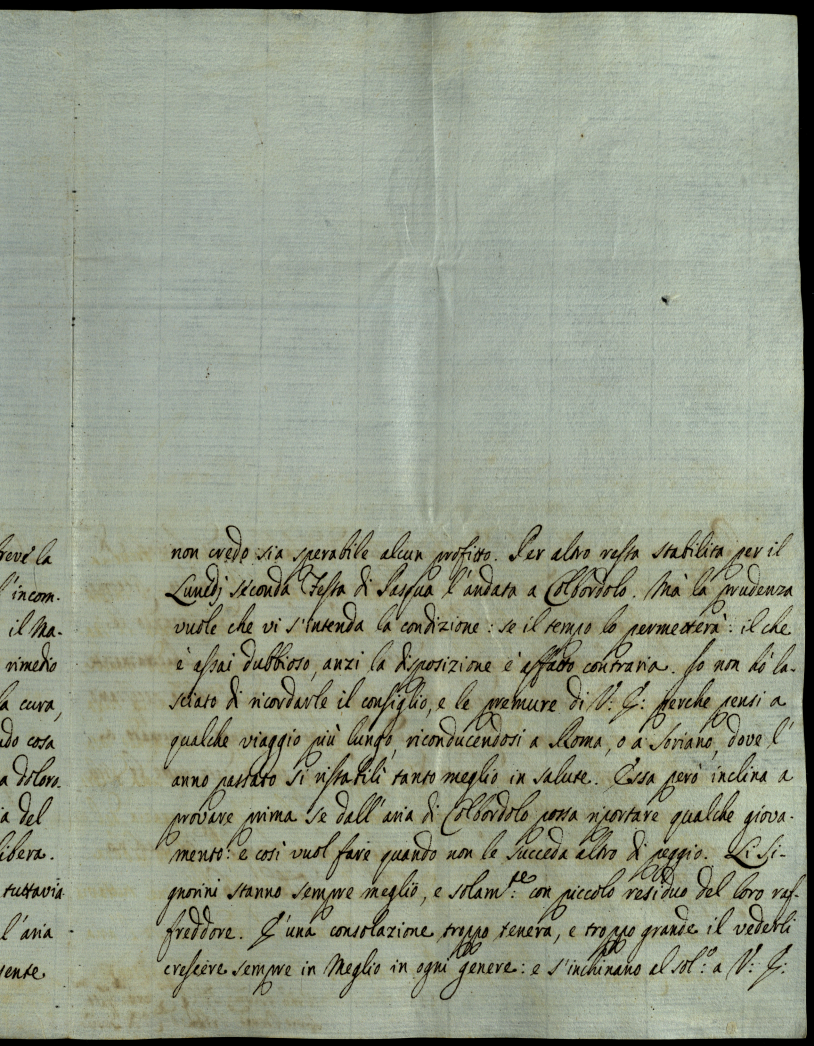 reve la
l'incom-
il Ma-
rimedio
la cura,
ndo cosa
a doloro.
ia del
libera.
tuttavia
l'aria
sente
non credo sia sperabile alcun profitto. Per altro resta stabilita per il
Lunedj seconda Festa di Pasqua l'andata a Colbordolo. Mà la prudenza
vuole che vi s'intenda la condizione: se il tempo lo permetterà: il che
è assai dubbioso, anzi la disposizione è affatto contraria. Io non hò la-
sciato di ricordarle il consiglio, e le premure di V: E: perche pensi a
qualche viaggio più lungo, riconducendosi a Roma, o a Soriano, dove l'
anno passato si ristabilì tanto meglio in salute. Essa però inclina a
provare prima se dall'aria di Colbordolo possa riportare qualche giova-
mento: e così vuol fare quando non le succeda altro di peggio. Li Si-
gnorini stanno sempre meglio, e solam.te con piccolo residuo del loro raf-
freddore. E' una consolazione troppo tenera, e troppo grande il vederli
crescere sempre in meglio in ogni genere: e s'inchinano al sol:o a V: E: